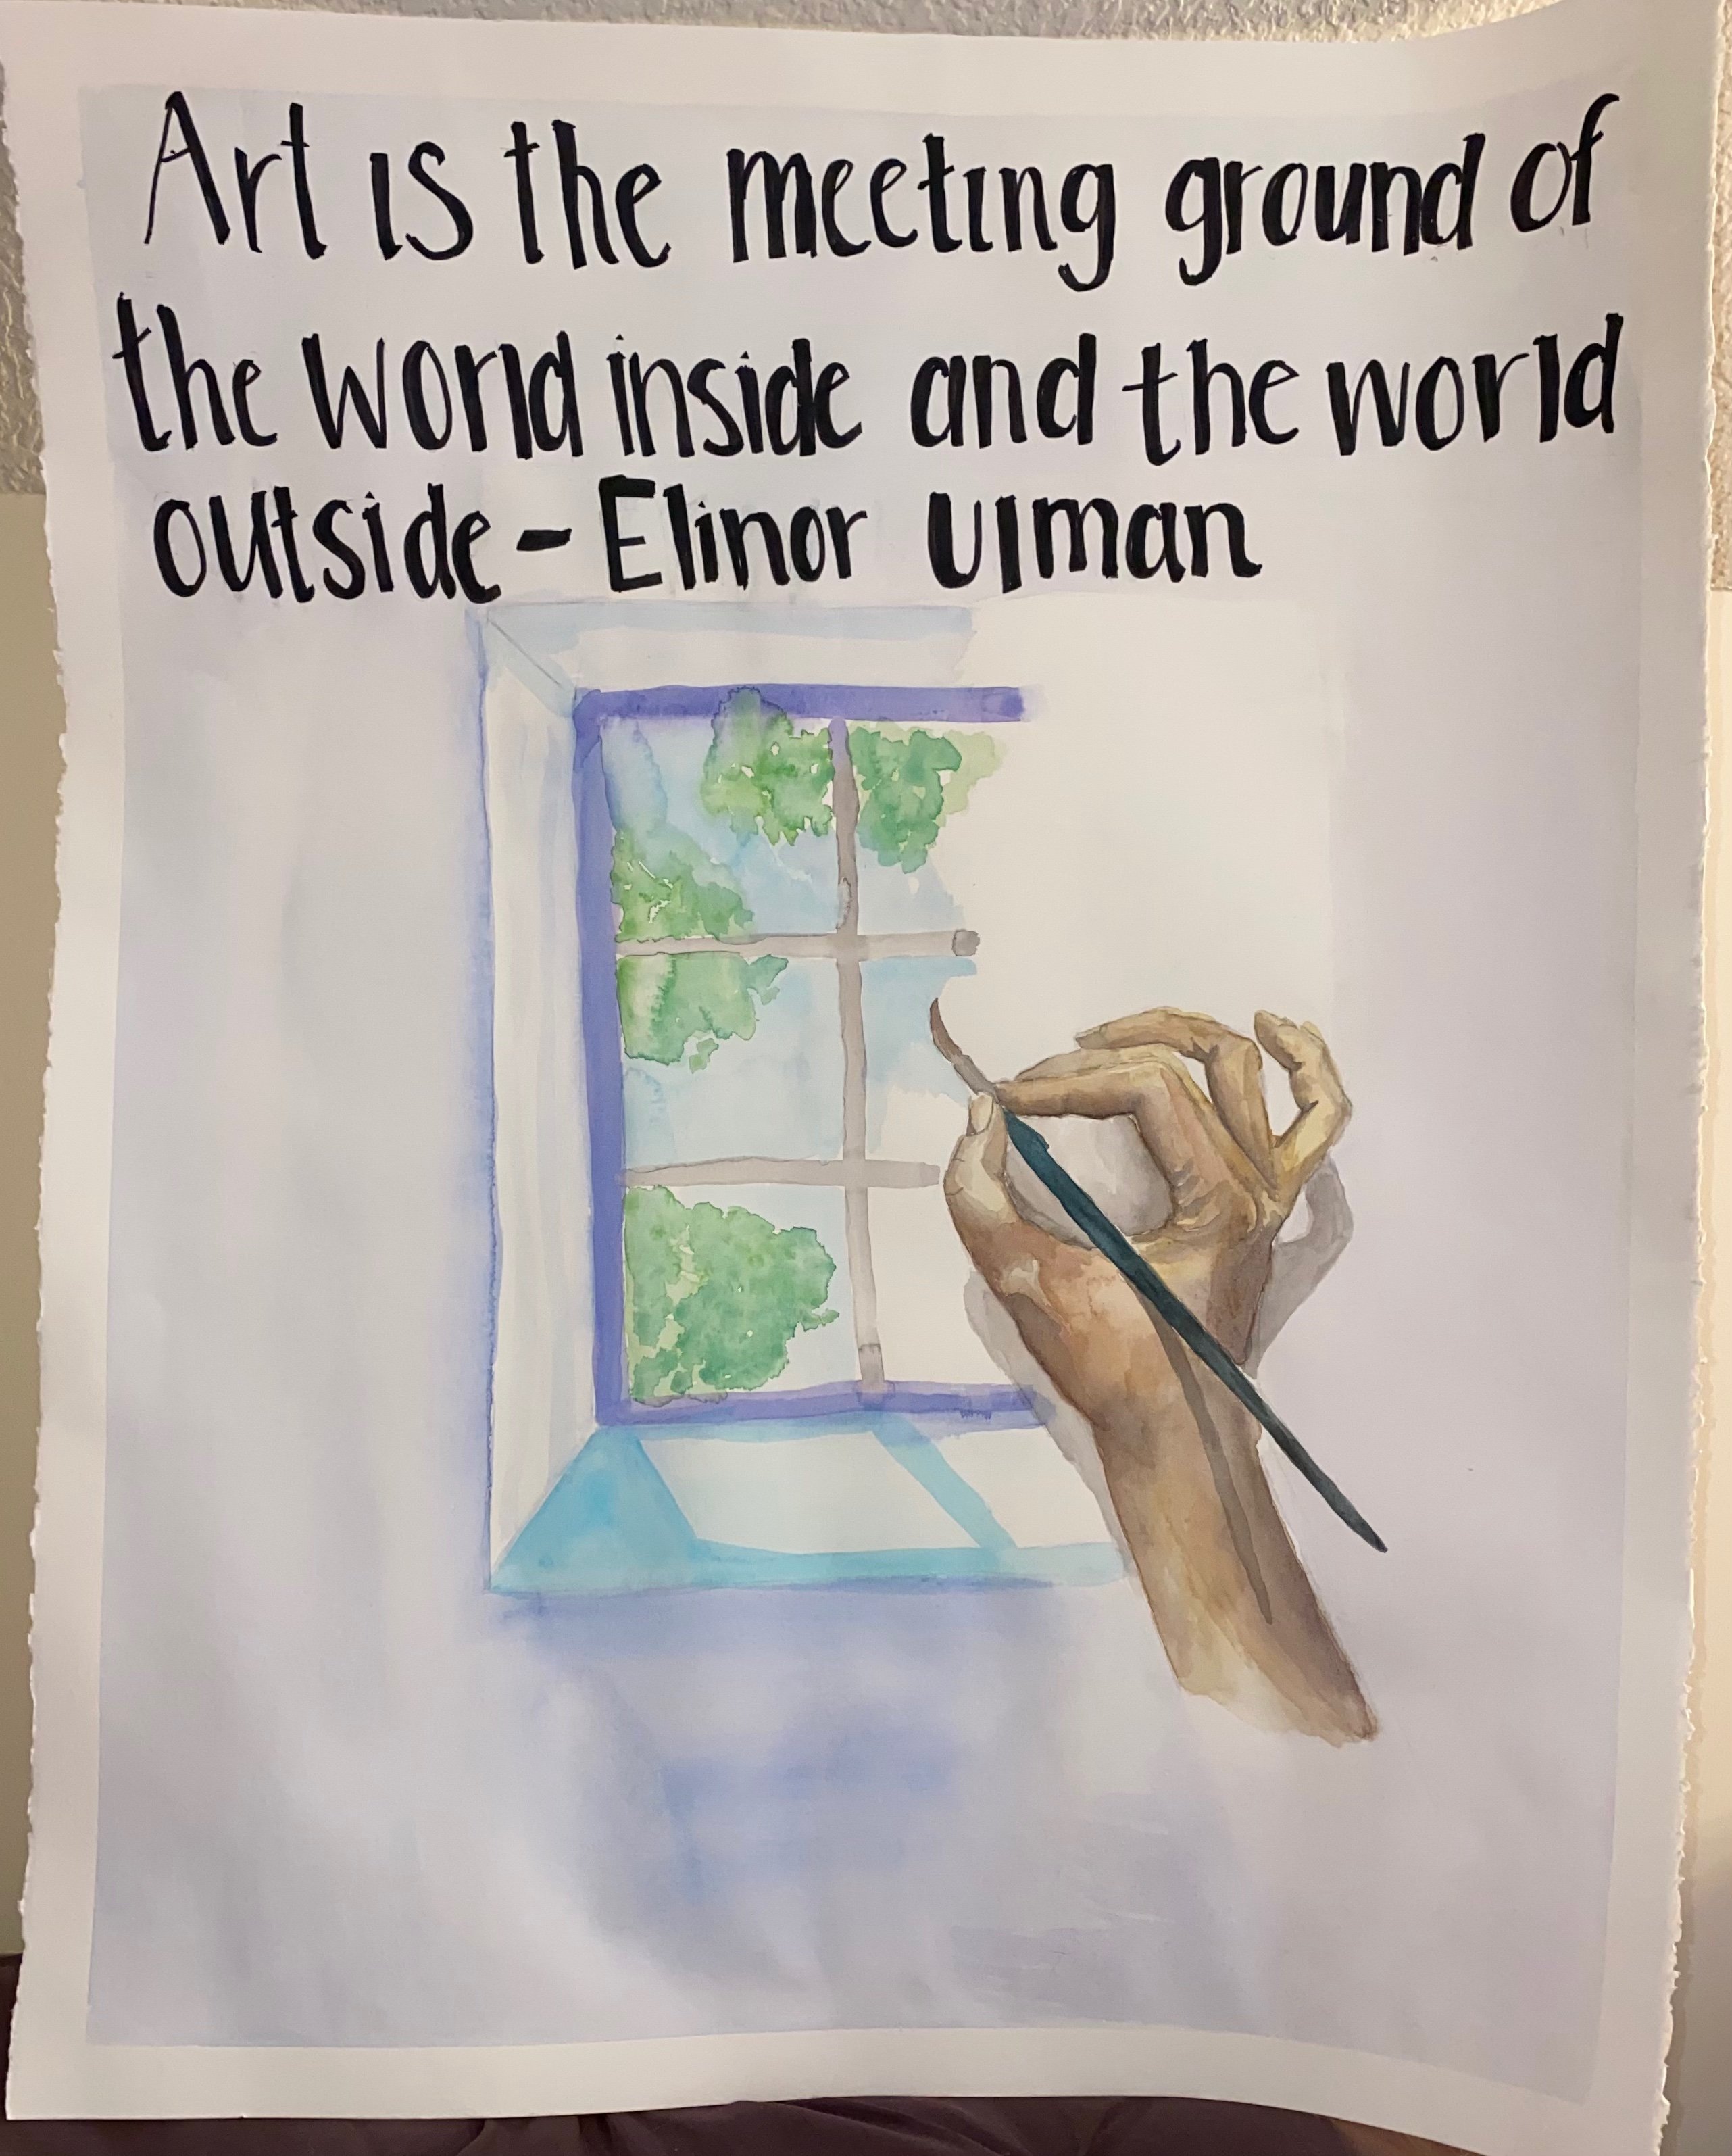 Art is the meeting ground of
the world inside and the world
outside - Elinor Ulman